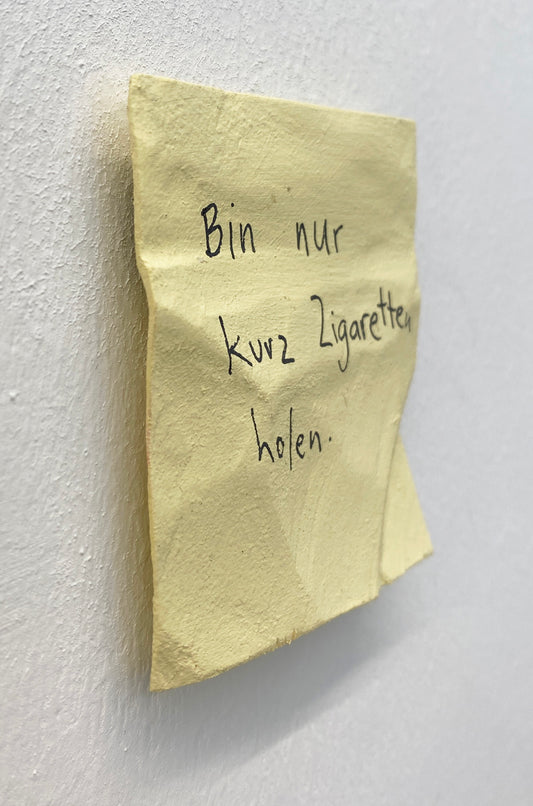 Bin nur
kurz Zigaretten
holen.